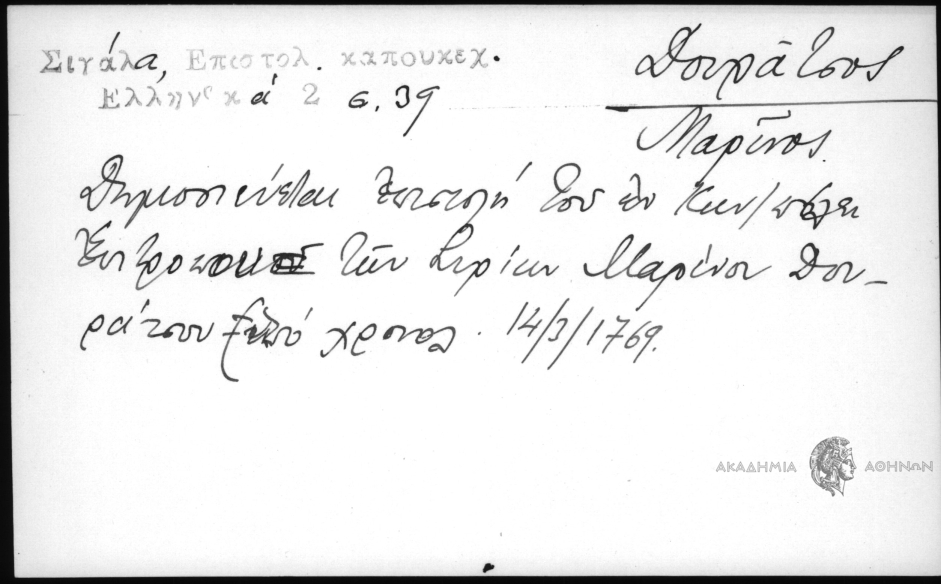 Σιγάλα, Επιστολ. καπουκεχ.
Ελληνικά 2 σ. 39
Δουράτσος
Μαρῖνος.
Δημοσιεύεται ἐπιστολή τοῦ ἐν Κων/πόλει
Ἐπιτρόπου τῶν Μαρίνου Δου-
ράτσου ὑπό χρονολ. 14/3/1769.
ΑΚΑΔΗΜΙΑ ΑΘΗΝΩΝ